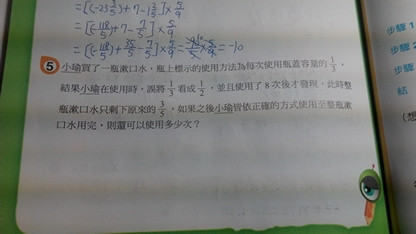 =[(-23 3/5)+7-1 2/5]×5/9
=[(-118/5)+7-7/5]×5/9
=[(-118/5)+35/5-7/5]×5/9=
=-10
5 小瑜買了一瓶漱口水，瓶上標示的使用方法為每次使用瓶蓋容量的1/3，
結果小瑜在使用時，誤將1/3看成1/2，並且使用了8次後才發現，此時整
瓶漱口水只剩下原來的3/5，如果之後小瑜皆依正確的方式使用至整瓶漱
口水用完，則還可以使用多少次？
步驟1
步驟
步驟
結
(想